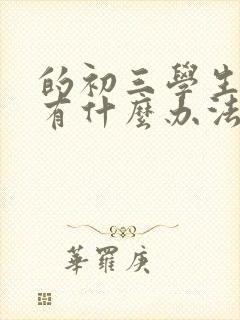 的初三學生
有什麼办法
華羅庚